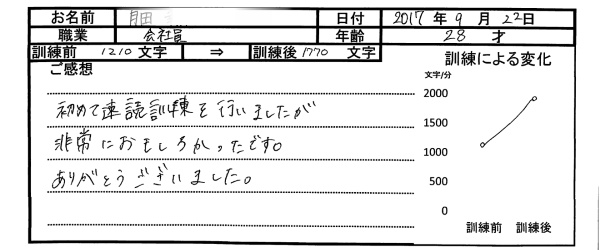 お名前 日付 2017 年 9 月 22日
職業 会社員 年齢 28 才
訓練前 1210 文字 ⇒ 訓練後 1770 文字
ご感想
初めて速読訓練を行いましたが
非常におもしろかったです。
ありがとうございました。
訓練による変化
文字/分
2000
1500
1000
500
0
訓練前 訓練後